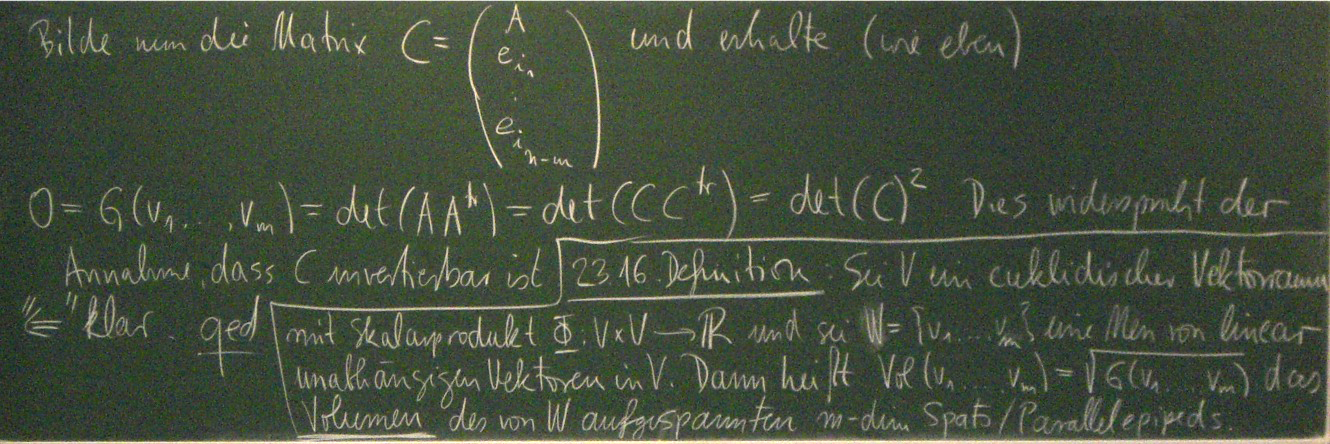 Bilde nun die Matrix C = ( A
e_{i_1}
.
e_{i_{n-m}} ) und erhalte (wie eben)
0 = G(v_1, ..., v_m) = det(AA^{tr}) = det(CC^{tr}) = det(C)^2 Dies widerspricht der
Annahme, dass C invertierbar ist
"⇐" klar. qed
23.16. Definition: Sei V ein euklidischer Vektorraum
mit Skalarprodukt Φ: V×V → ℝ und sei W = {v_1 .... v_m} eine Men von linear
unabhängigen Vektoren in V. Dann heißt Vol(v_1 .... v_m) = √G(v_1 .... v_m) das
Volumen des von W aufgespannten m-dim Spats/Parallelepipeds.